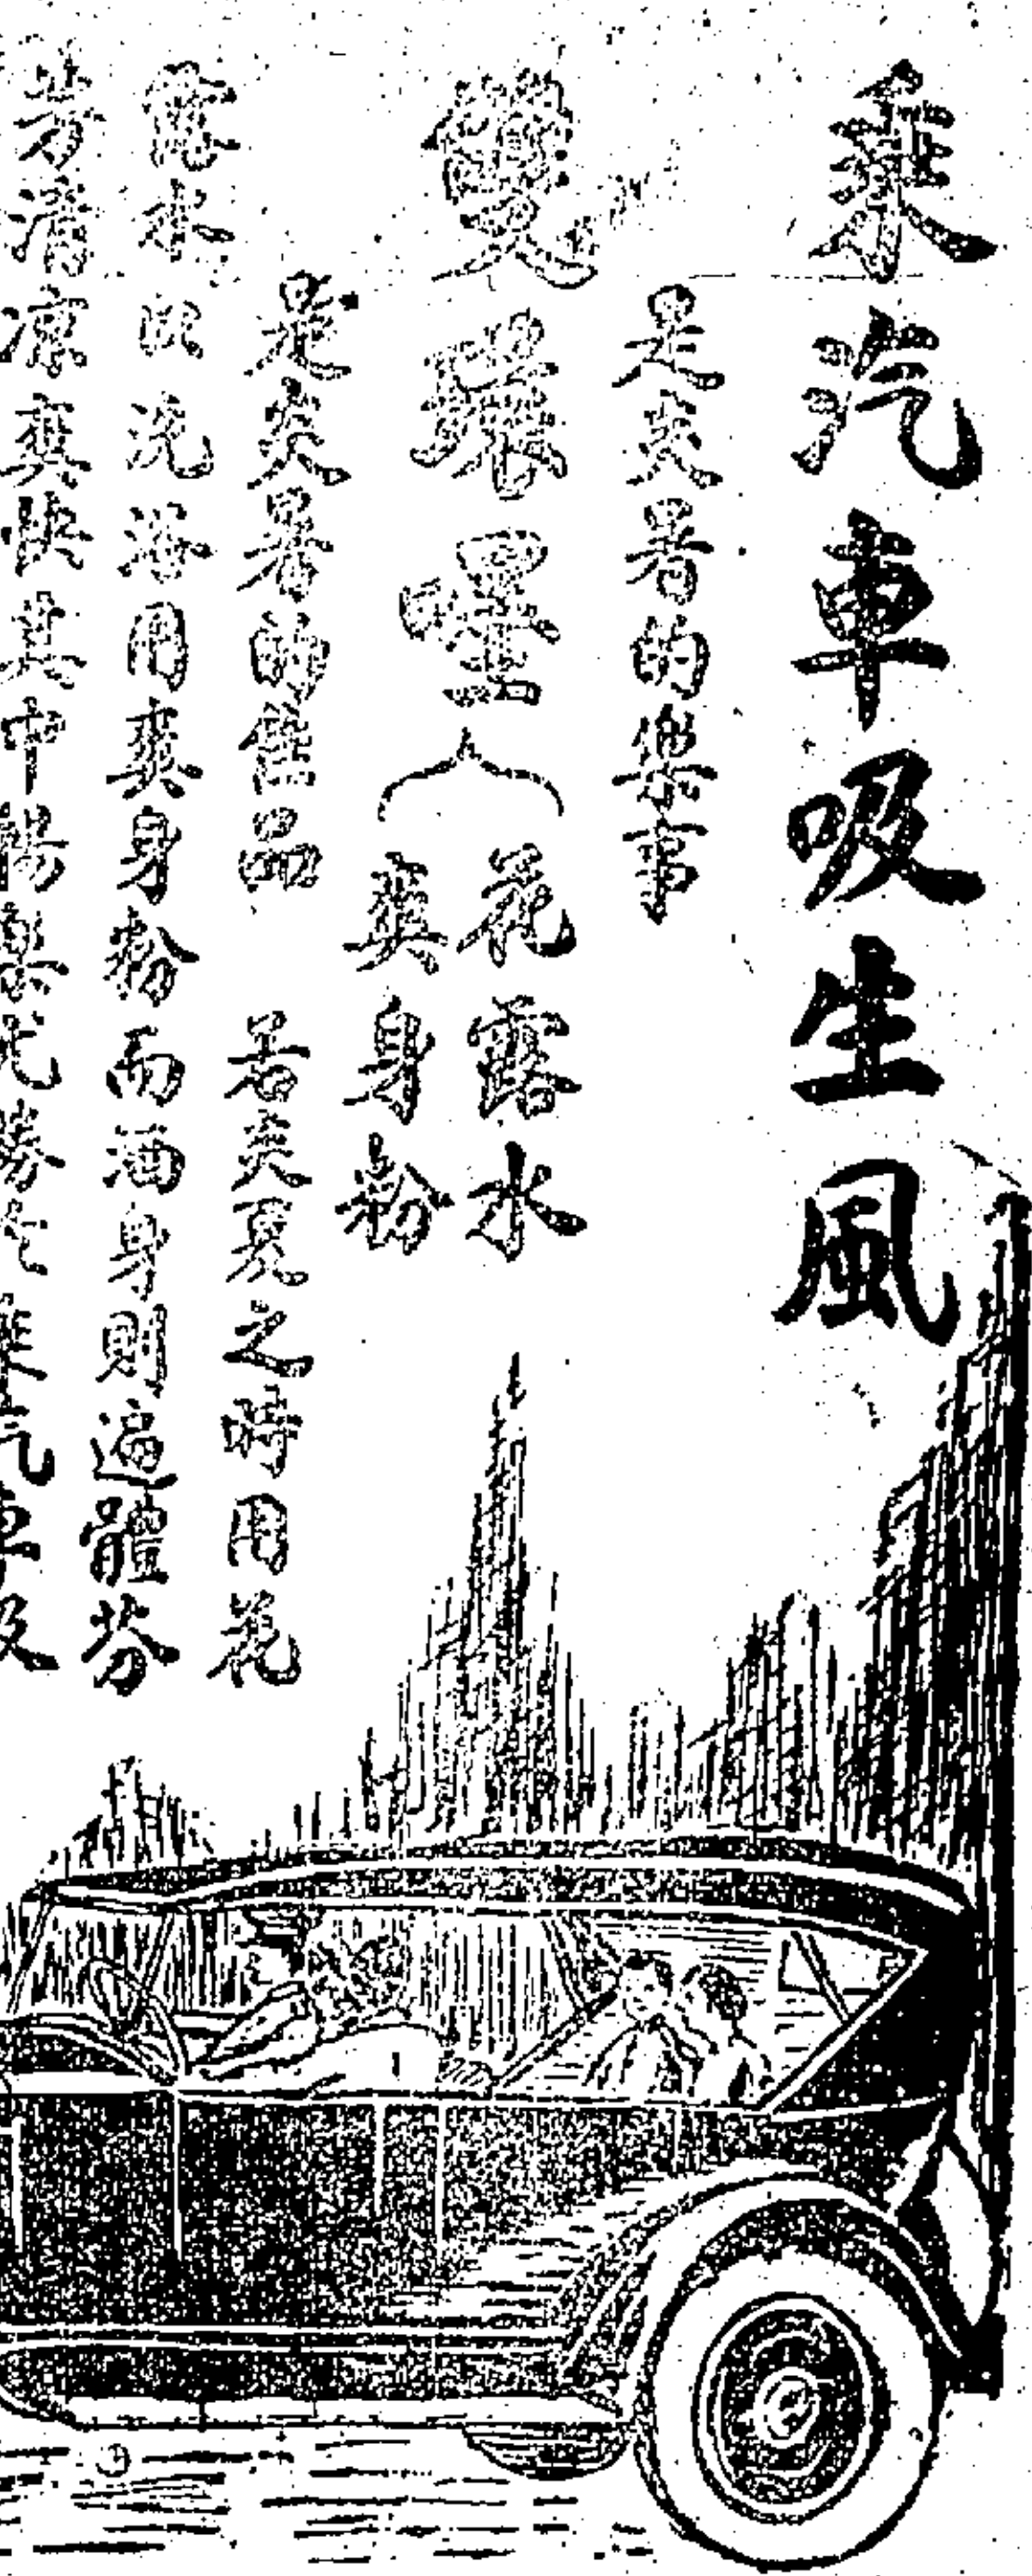 乘汽車吸生風
是炎暑的樂事
雙環嚜
花露水
爽身粉
是炎暑的佳品 若炎夏之時用花
露水以洗浴用爽身粉而洒身則遍體芬
芳清凉爽快其中暢樂尤勝乘汽車吸